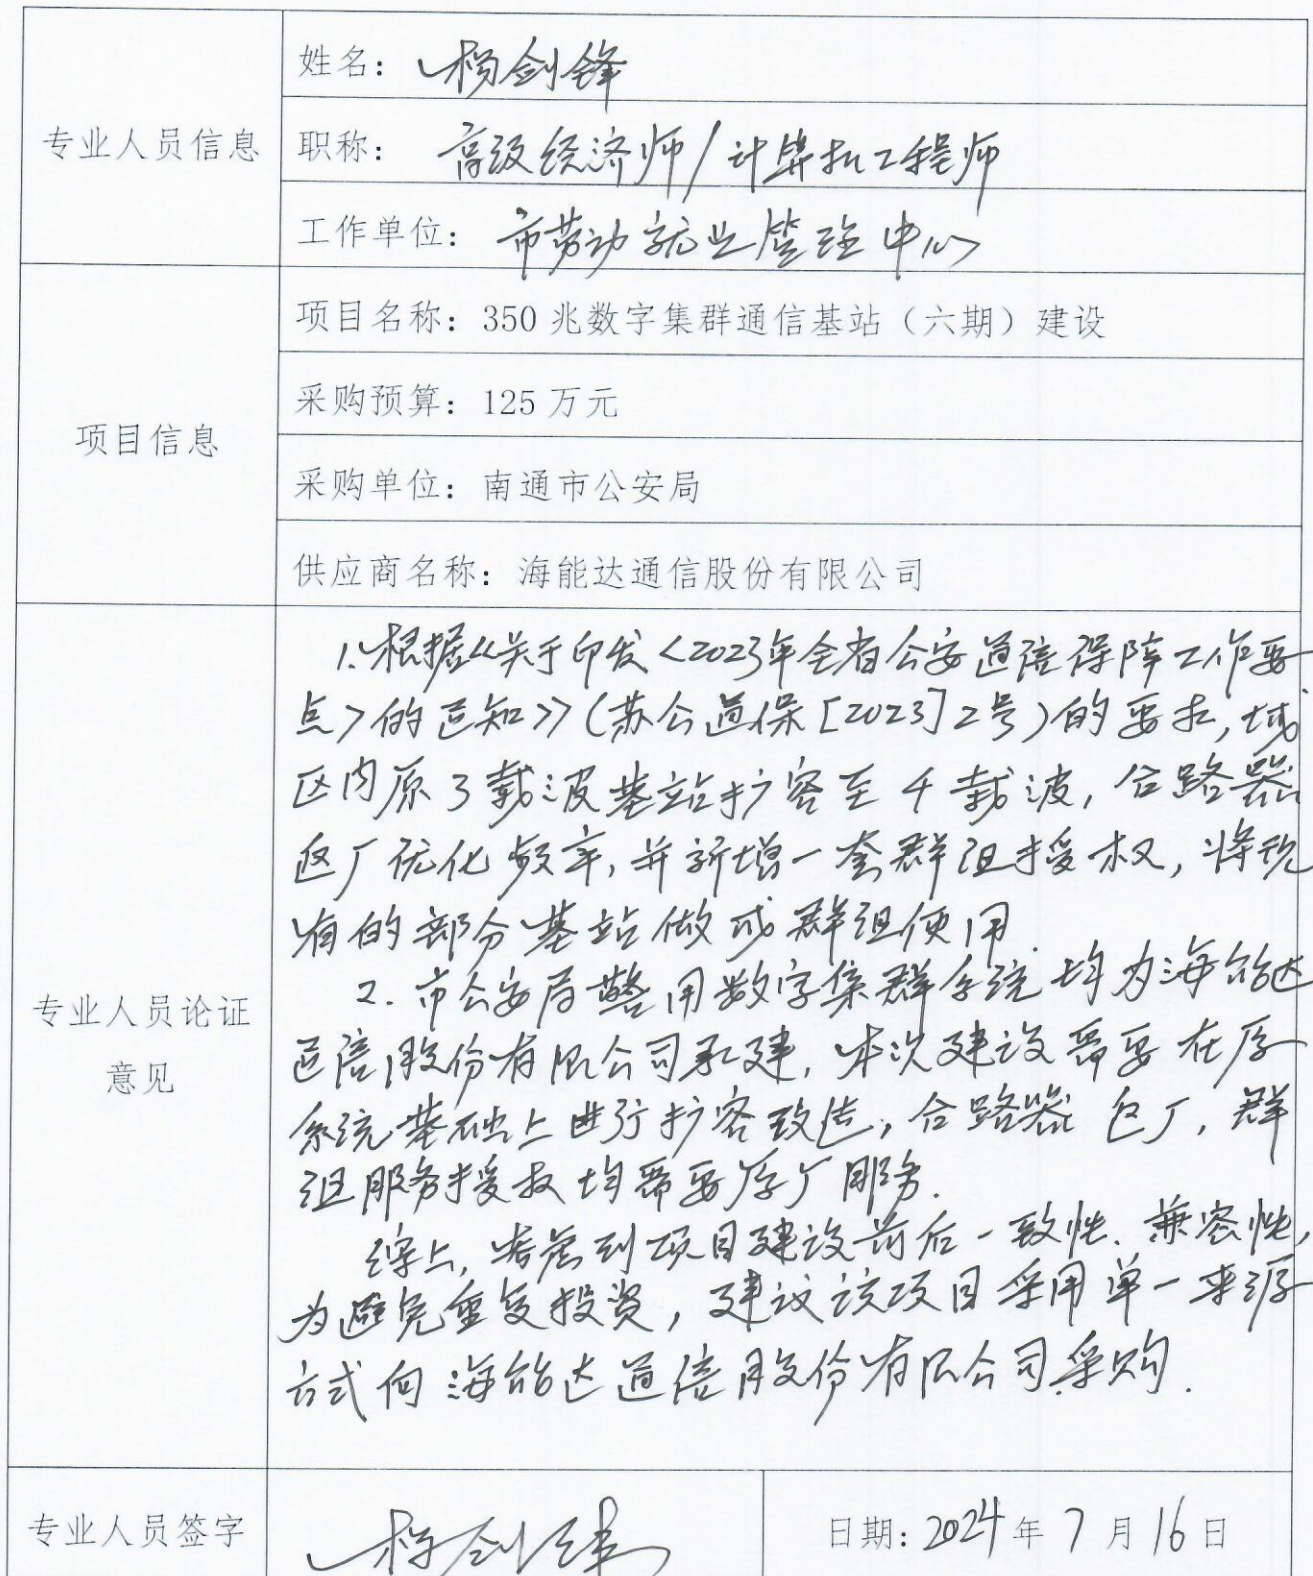 专业人员信息
姓名：杨剑锋
职称：高级经济师/计算机工程师
工作单位：市劳动就业管理中心
项目信息
项目名称：350兆数字集群通信基站（六期）建设
采购预算：125万元
采购单位：南通市公安局
供应商名称：海能达通信股份有限公司
专业人员论证
意见
1.根据《关于印发<2023年全省公安通信保障工作要
点>的通知》(苏公通保[2023]2号)的要求,城
区内原3载波基站扩容至4载波,合路器
返厂优化频率,并新增一套群组授权,将现
有的部分基站做成群组使用.
2.市公安局警用数字集群系统均为海能达
通信股份有限公司承建,本次建设需要在原
系统基础上进行扩容改造,合路器返厂,群
组服务授权均需要原厂服务.
综上,考虑到项目建设前后一致性、兼容性,
为避免重复投资,建议该项目采用单一来源
方式向海能达通信股份有限公司采购.
专业人员签字
杨剑锋
日期:2024年7月16日